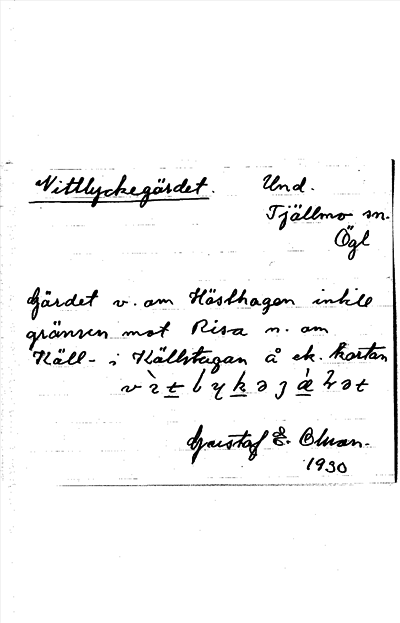 Vittlyckegärdet. Und.
Tjällmo sn.
Ögl
Gärdet v. om Hästhagen intill
gränsen mot Risa n. om
Käll- i Källstugan å ek. kartan
Gustaf E.
1930